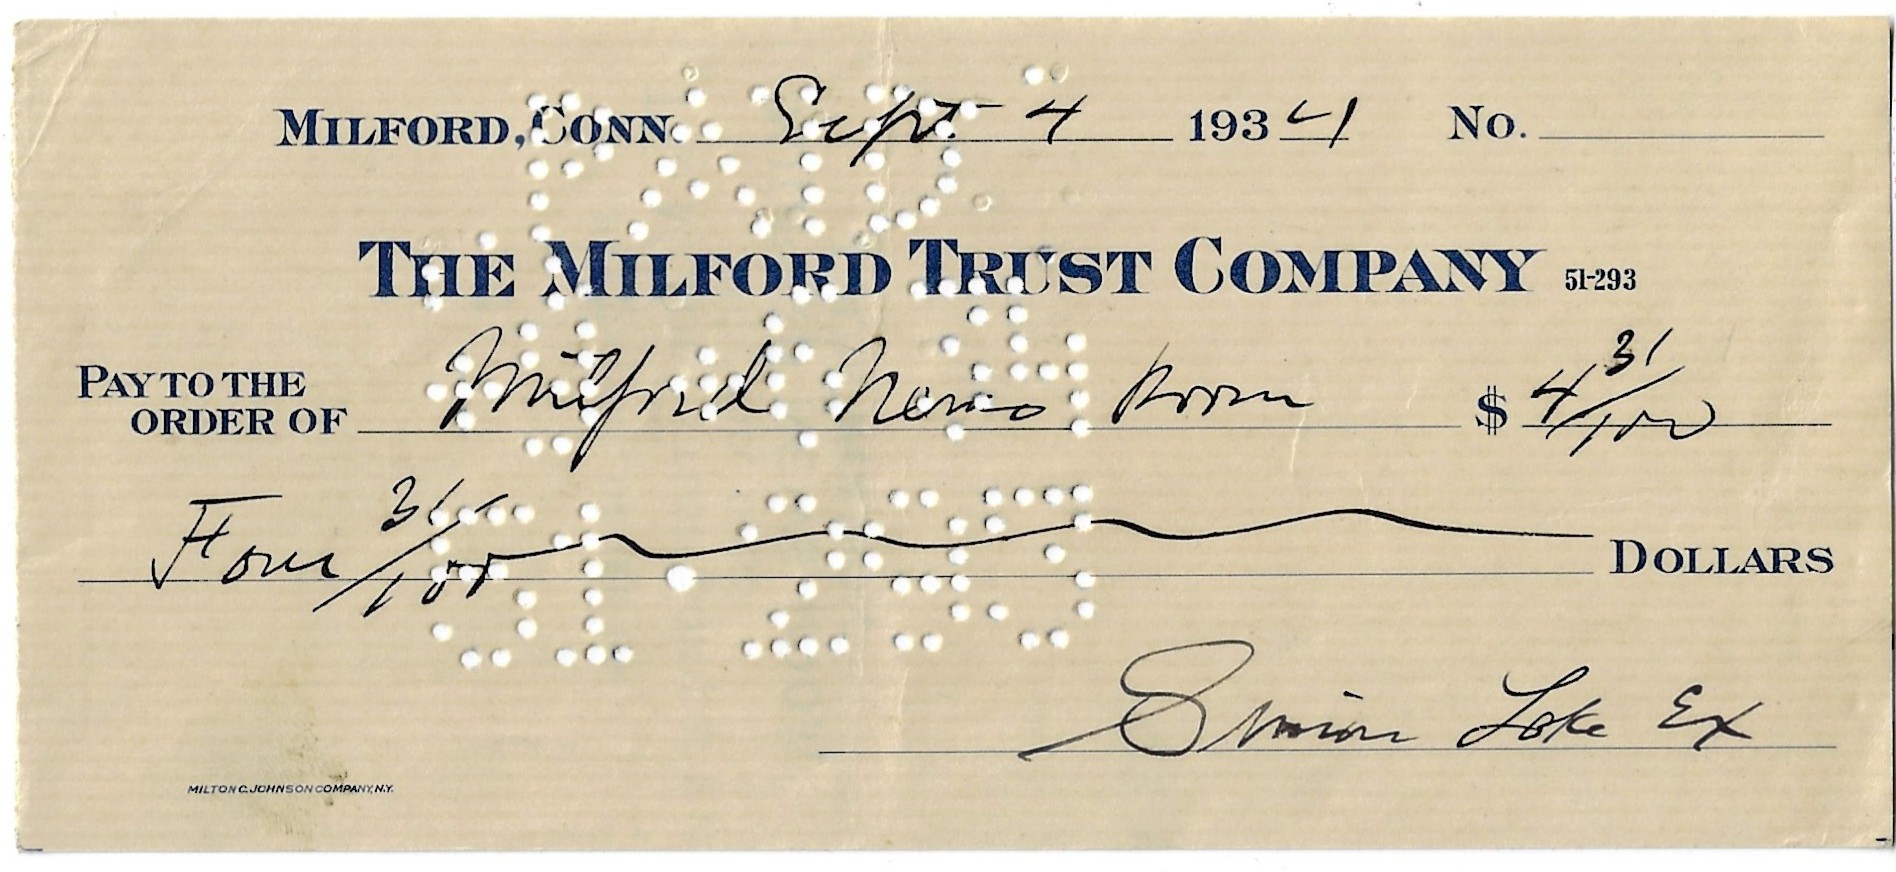 MILFORD, CONN. Sept. 4 1934 No.
THE MILFORD TRUST COMPANY 51-293
PAY TO THE ORDER OF Milford News Room $ 4 31/100
Four 31/100 DOLLARS
Simon Lake Ex
MILTON C. JOHNSON COMPANY, N.Y.
PAID
51-293